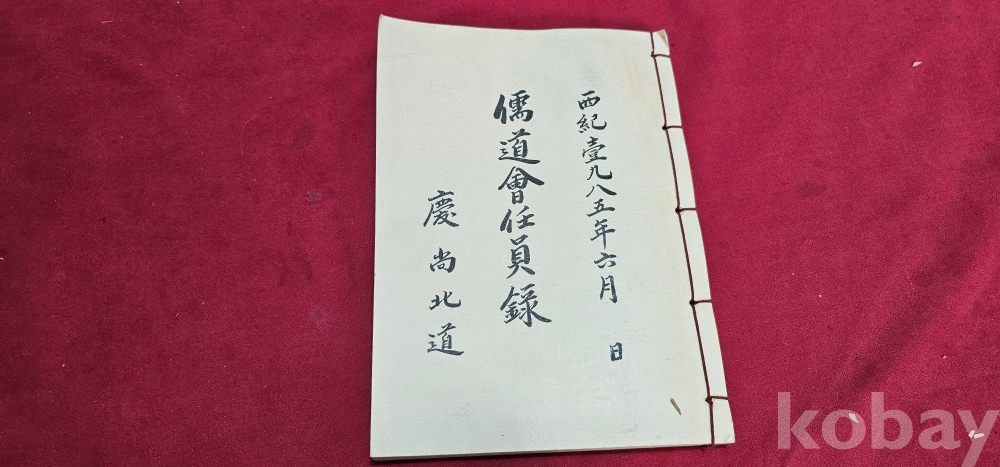 西紀壹九八五年六月 日
儒道會任員錄
慶尚北道
kobay